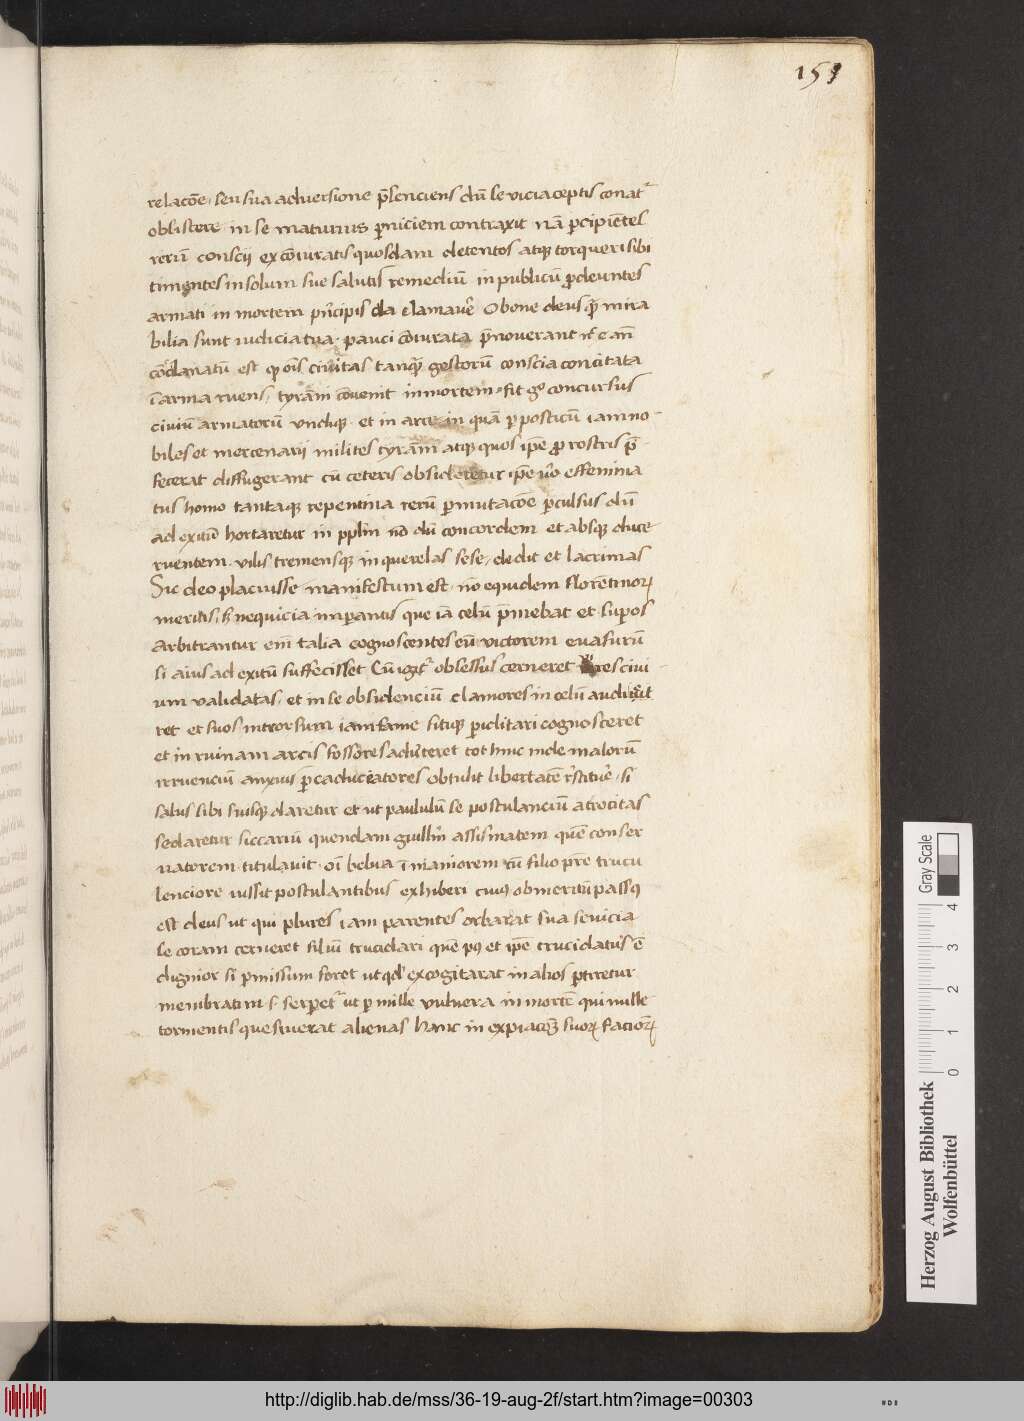 151
relacōe, seu sua adversione p̄senciens dū se vicia ceptis conat᷑
obsistere in se maturius ꝑniciem contraxit nā ꝑcipiētes
rerū conscij ex cōiuratis quosdam detentos atqꝫ torqueri sibi
timentes in solum sue salutis remediū in publicū ꝓdeuntes
armati in mortem pn̄cipis cla clamavēr O bone deus qm̄ mira
bilia sunt iudicia tua. pauci cōiurata p̄noverant
cōdanatū est qꝫ oīs civitas tanqꝫ gestorū conscia concitata
ī arma ruens, tyrāni cōvenit in mortem. fit gͦ concursus
civiū armatorū undiqꝫ. et in arce in quā ꝑ posticū iam no
biles et mercenarij milites tyrāni atqꝫ quos ip̄e ꝓ rostris p̄
fecerat diffugerant cū ceteris obsideretur ip̄e v̊o effemina
tus homo tantaqꝫ repentina rerū ꝑmutacōe ꝑculsus dū
ad exitū hortaretur in pplm nō dū concordem et absqꝫ duce
ruentem. vilis tremensqꝫ in querelas sese, dedit et lacrimas
Sic deo placuisse manifestum est. nō equidem florētinoꝝ
meritis, sꝫ nequicia imꝑantis que iā celū p̄mebat et suꝑos
arbitrantur em̄ talia cognoscentes eū victorem evasurū
si aīus ad exitū suffecisset Cū igit᷑ obsessus cerneret vires civi
um validatas, et in se obsidenciū clamores in celū audi
ret et suos introrsum iam fame sitiqꝫ ꝑiclitari cognosceret
et in ruinam arcis fossores adverteret tot hinc inde malorū
irruenciū anxius ꝑ caduciatores obtulit libertatē r̄stituēr. si
salus sibi suisqꝫ daretur et ut paululū se postulanciū atrocitas
sedaretur siccariū quendam guillm̄ assismatem quē conser
vatorem titulavit. oī belua ī maniorem cū filio pr̄e trucu
lenciore iussit postulantibus exhiberi cuiꝰ ob meritū passꝰ
est deus ut qui plures iam parentes orbarat sua sevicia
se coram cerneret filiū trucidari quē pꝰ et ip̄e trucidatus ē
dignior si ꝑmissum foret ut qd̛ excogitarat in alios ꝑtrretur
membratim s. serpet᷑ ut ꝑ mille vulnera in mortē qui mille
tormentis quesiverat alienas hanc in expiacōꝫ suoꝝ facioꝝ
Gray Scale
0 1 2 3 4
Herzog August Bibliothek
Wolfenbüttel
http://diglib.hab.de/mss/36-19-aug-2f/start.htm?image=00303